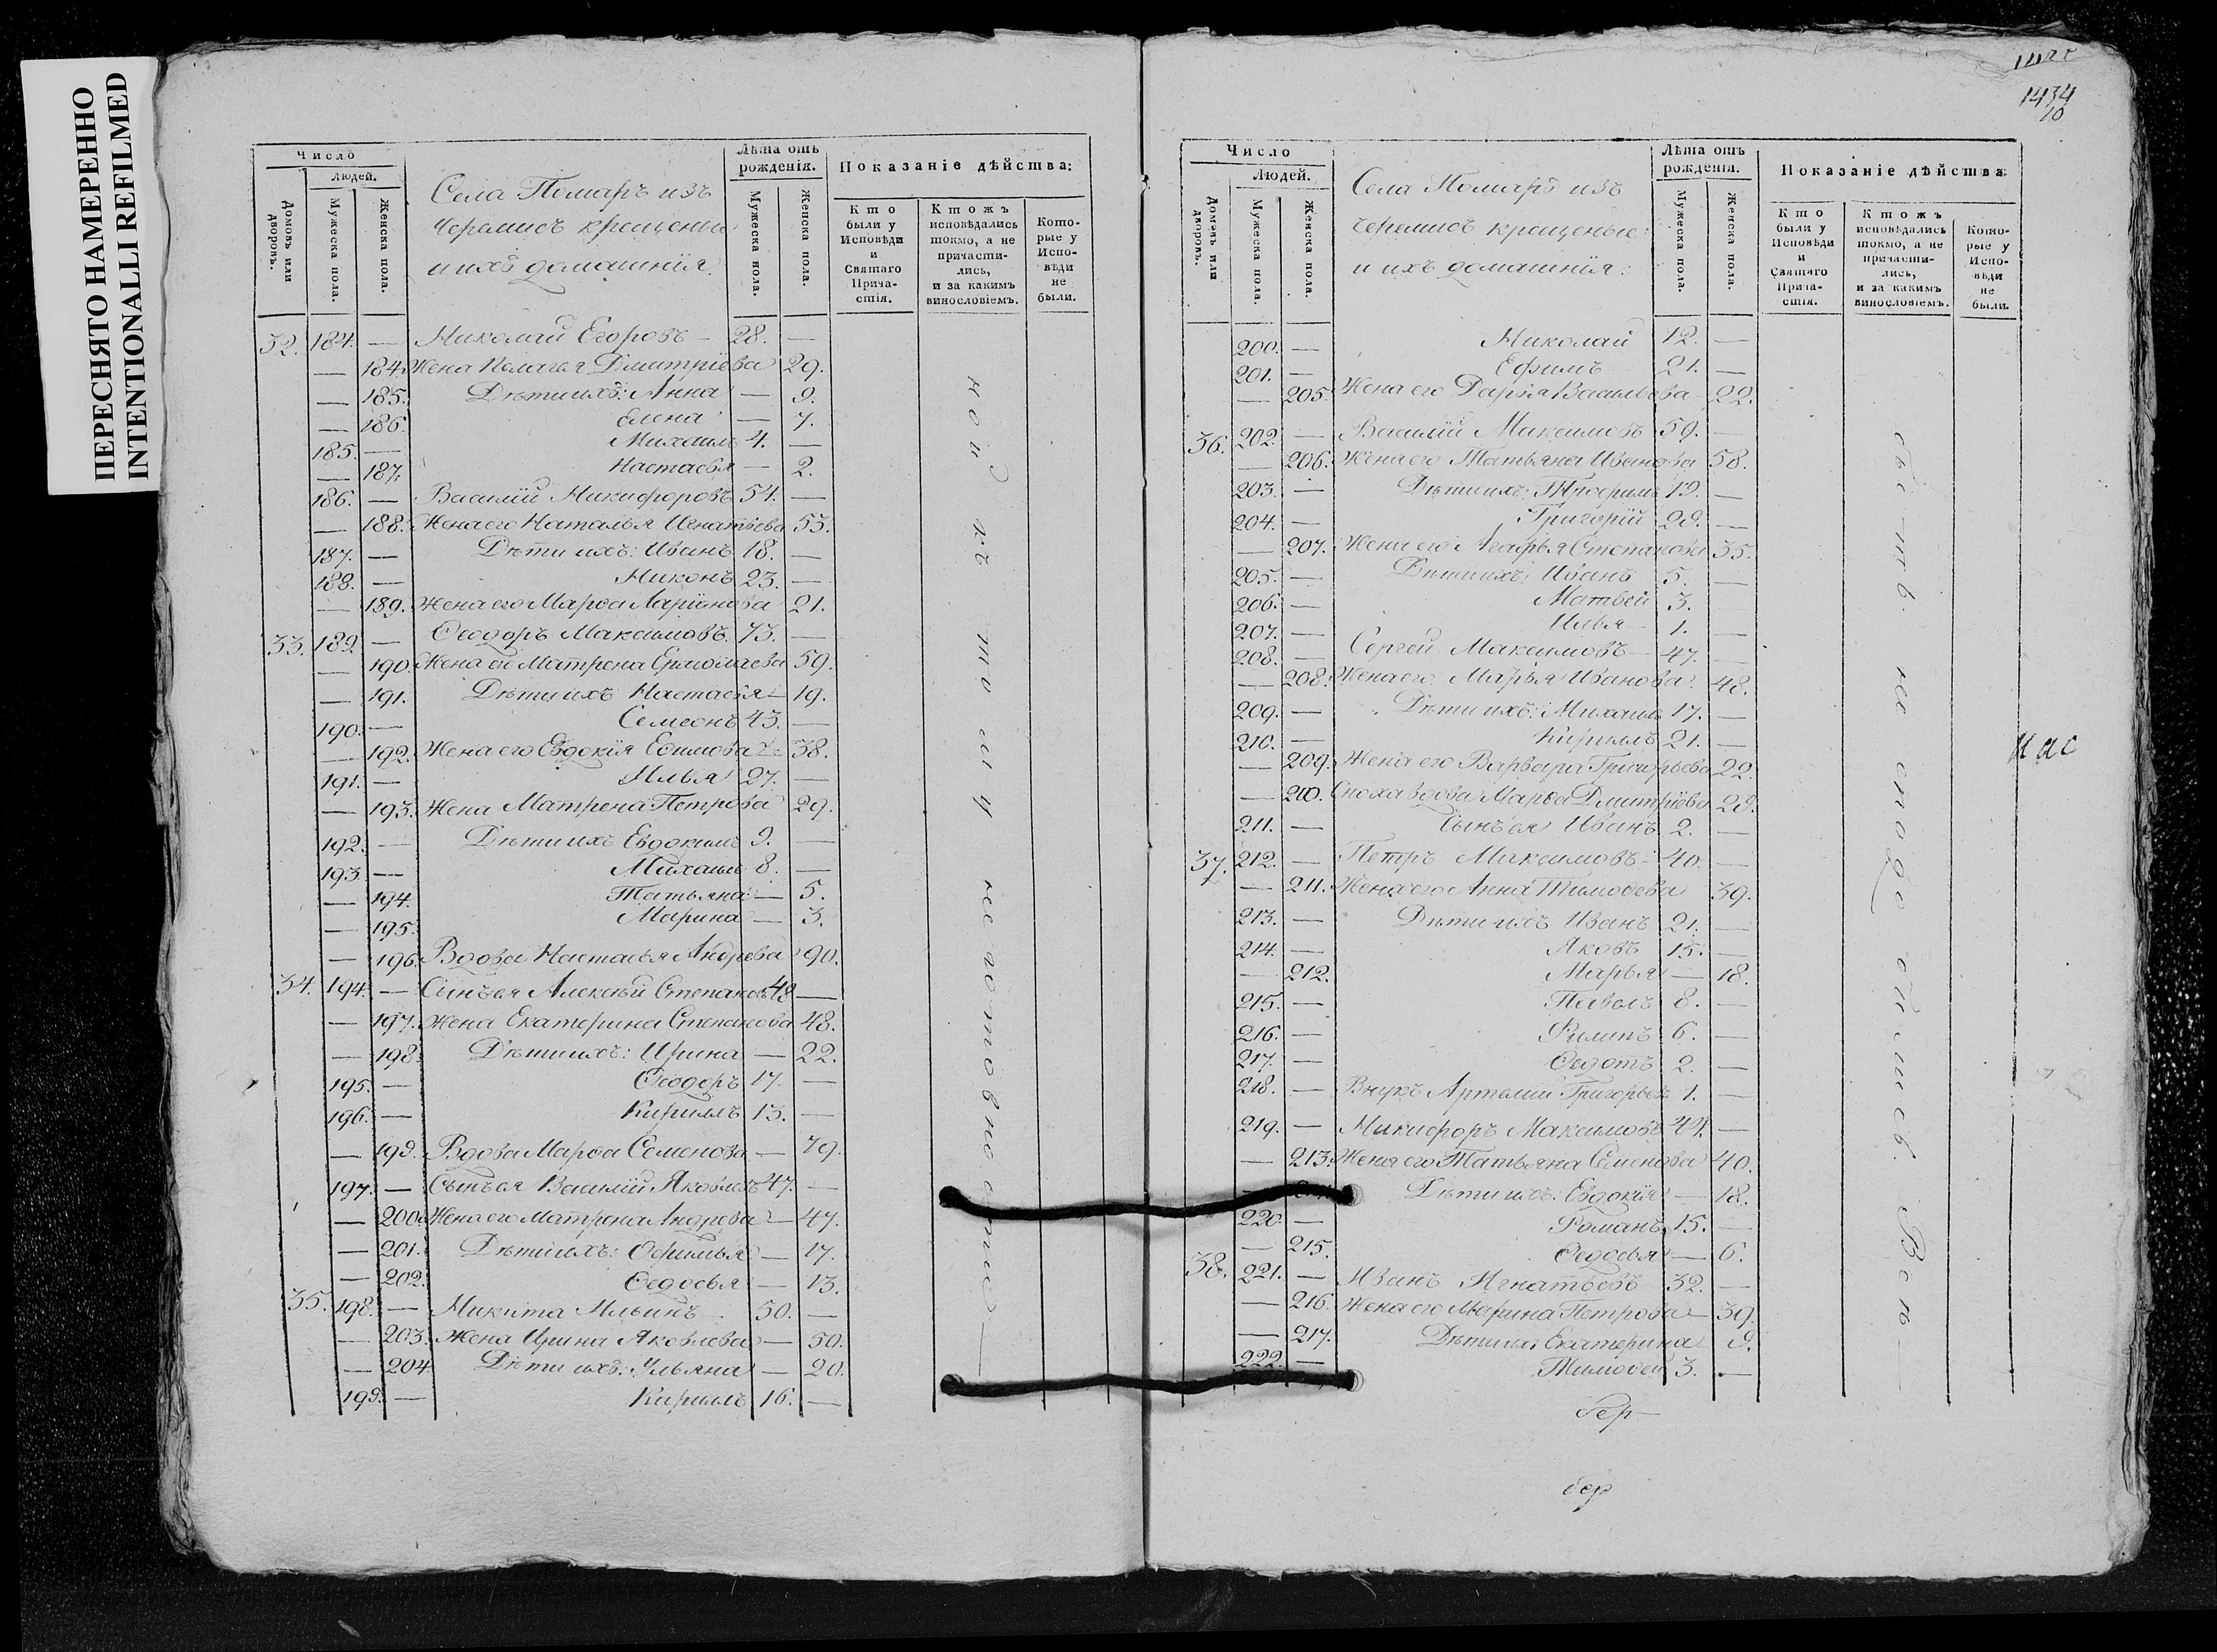 ПЕРЕСНЯТО НАМЕРЕННО
INTENTIONALLI REFILMED
Число
Людей.
Домовъ или дворовъ.
Мужеска пола.
Женска пола.
Села Помаръ изъ
Черемисъ крещеныя
и ихъ домашнія.
Лѣта отъ рожденія.
Мужеска пола.
Женска пола.
Показаніе дѣйства:
Кто были у Исповѣди и Святаго Прича-стія.
Ктожъ исповѣдались токмо, а не причасти-лись, и за какимъ винословіемъ.
Кото-рые у Испо-вѣди не были.
32. 184. — Николай Егоровъ — 28. —
— 184. Жена Пелагея Дмитріева 29.
— 185. Дѣти ихъ: Анна — 9.
— 186. Елена — 7.
185. — Михаилъ 4. —
— 187. Настасья — 2.
186. — Василій Никифоровъ 54. —
— 188. Жена его Наталья Игнатьева 53.
187. — Дѣти ихъ: Иванъ 18. —
188. — Никонъ 23. —
— 189. Жена его Марѳа Ларіонова 21.
33. 189. — Ѳеодоръ Максимовъ 73. —
— 190. Жена его Матрена Ермолаева 59.
— 191. Дѣти ихъ Настасья — 19.
190. — Семеонъ 43. —
— 192. Жена его Евдокія Ефимова 38.
191. — Илья 27. —
— 193. Жена Матрена Петрова 29.
192. — Дѣти ихъ Евдокимъ 9. —
193. — Михаилъ 8. —
— 194. Татьяна — 5.
— 195. Марина — 3.
— 196. Вдова Настасья Андрева 90.
34. 194. — Сынъ ея Алексѣй Степановъ 48 —
— 197. Жена Екатерина Степанова 48.
— 198. Дѣти ихъ: Ирина — 22.
195. — Ѳеодоръ 17. —
196. — Кириллъ 13. —
— 199. Вдова Марѳа Семенова — 79.
197. — Сынъ ея Василій Яковлевъ 47. —
— 200. Жена его Матрена Андрева — 47.
— 201. Дѣти ихъ: Офимья — 17.
— 202. Ѳедосья — 13.
35. 198. — Микита Ильинъ 50. —
— 203. Жена Ирина Яковлева — 50.
— 204 Дѣти ихъ: Ульяна — 20.
199. — Кириллъ 16. —
1434
10
Число
Людей.
Домовъ или дворовъ.
Мужеска пола.
Женска пола.
Села Помаръ изъ
Черемисъ крещеныя
и ихъ домашнія:
Лѣта отъ рожденія.
Мужеска пола.
Женска пола.
Показаніе дѣйства:
Кто были у Исповѣди и Святаго Прича-стія.
Ктожъ исповѣдались токмо, а не причасти-лись, и за какимъ винословіемъ.
Кото-рые у Испо-вѣди не были.
200. — Николай 12. —
201. — Ефимъ 21. —
— 205. Жена его Дарья Васильева 22.
36. 202. — Василій Максимовъ 59. —
— 206. Жена его Татьяна Иванова 58.
203. — Дѣти ихъ: Трофимъ 19. —
204. — Григорій 29. —
— 207. Жена его Агафья Степанова 35.
205. — Дѣти ихъ: Иванъ 5. —
206. — Матвей 3. —
207. — Илья 1. —
208. — Сергей Максимовъ — 47. —
— 208. Жена его Марья Иванова. 48.
209. — Дѣти ихъ: Михаилъ 17. —
210. — Кириллъ 21. —
— 209. Жена его Варвара Григорьева 22.
— 210. Сноха вдова Марѳа Дмитріева 29.
211. — Сынъ ея Иванъ 2. —
37. 212. — Петръ Максимовъ — 40. —
— 211. Жена его Анна Тимоѳева 39.
213. — Дѣти ихъ Иванъ 21. —
214. — Яковъ 15. —
— 212. Марья — 18.
215. — Павелъ 8. —
216. — Филипъ 6. —
217. — Ѳедотъ 2. —
218. — Внукъ Артемій Григорьевъ 1. —
219. — Никифоръ Максимовъ 44. —
— 213. Жена его Татьяна Семенова 40.
Дѣти ихъ: Евдокія — 18.
220. — Романъ 15. —
— 215. Ѳедосья — 6.
38. 221. — Иванъ Игнатьевъ 32. —
— 216. Жена его Марина Петрова — 39.
— 217. Дѣти ихъ Екатерина 9.
222. — Тимоѳей 3. —